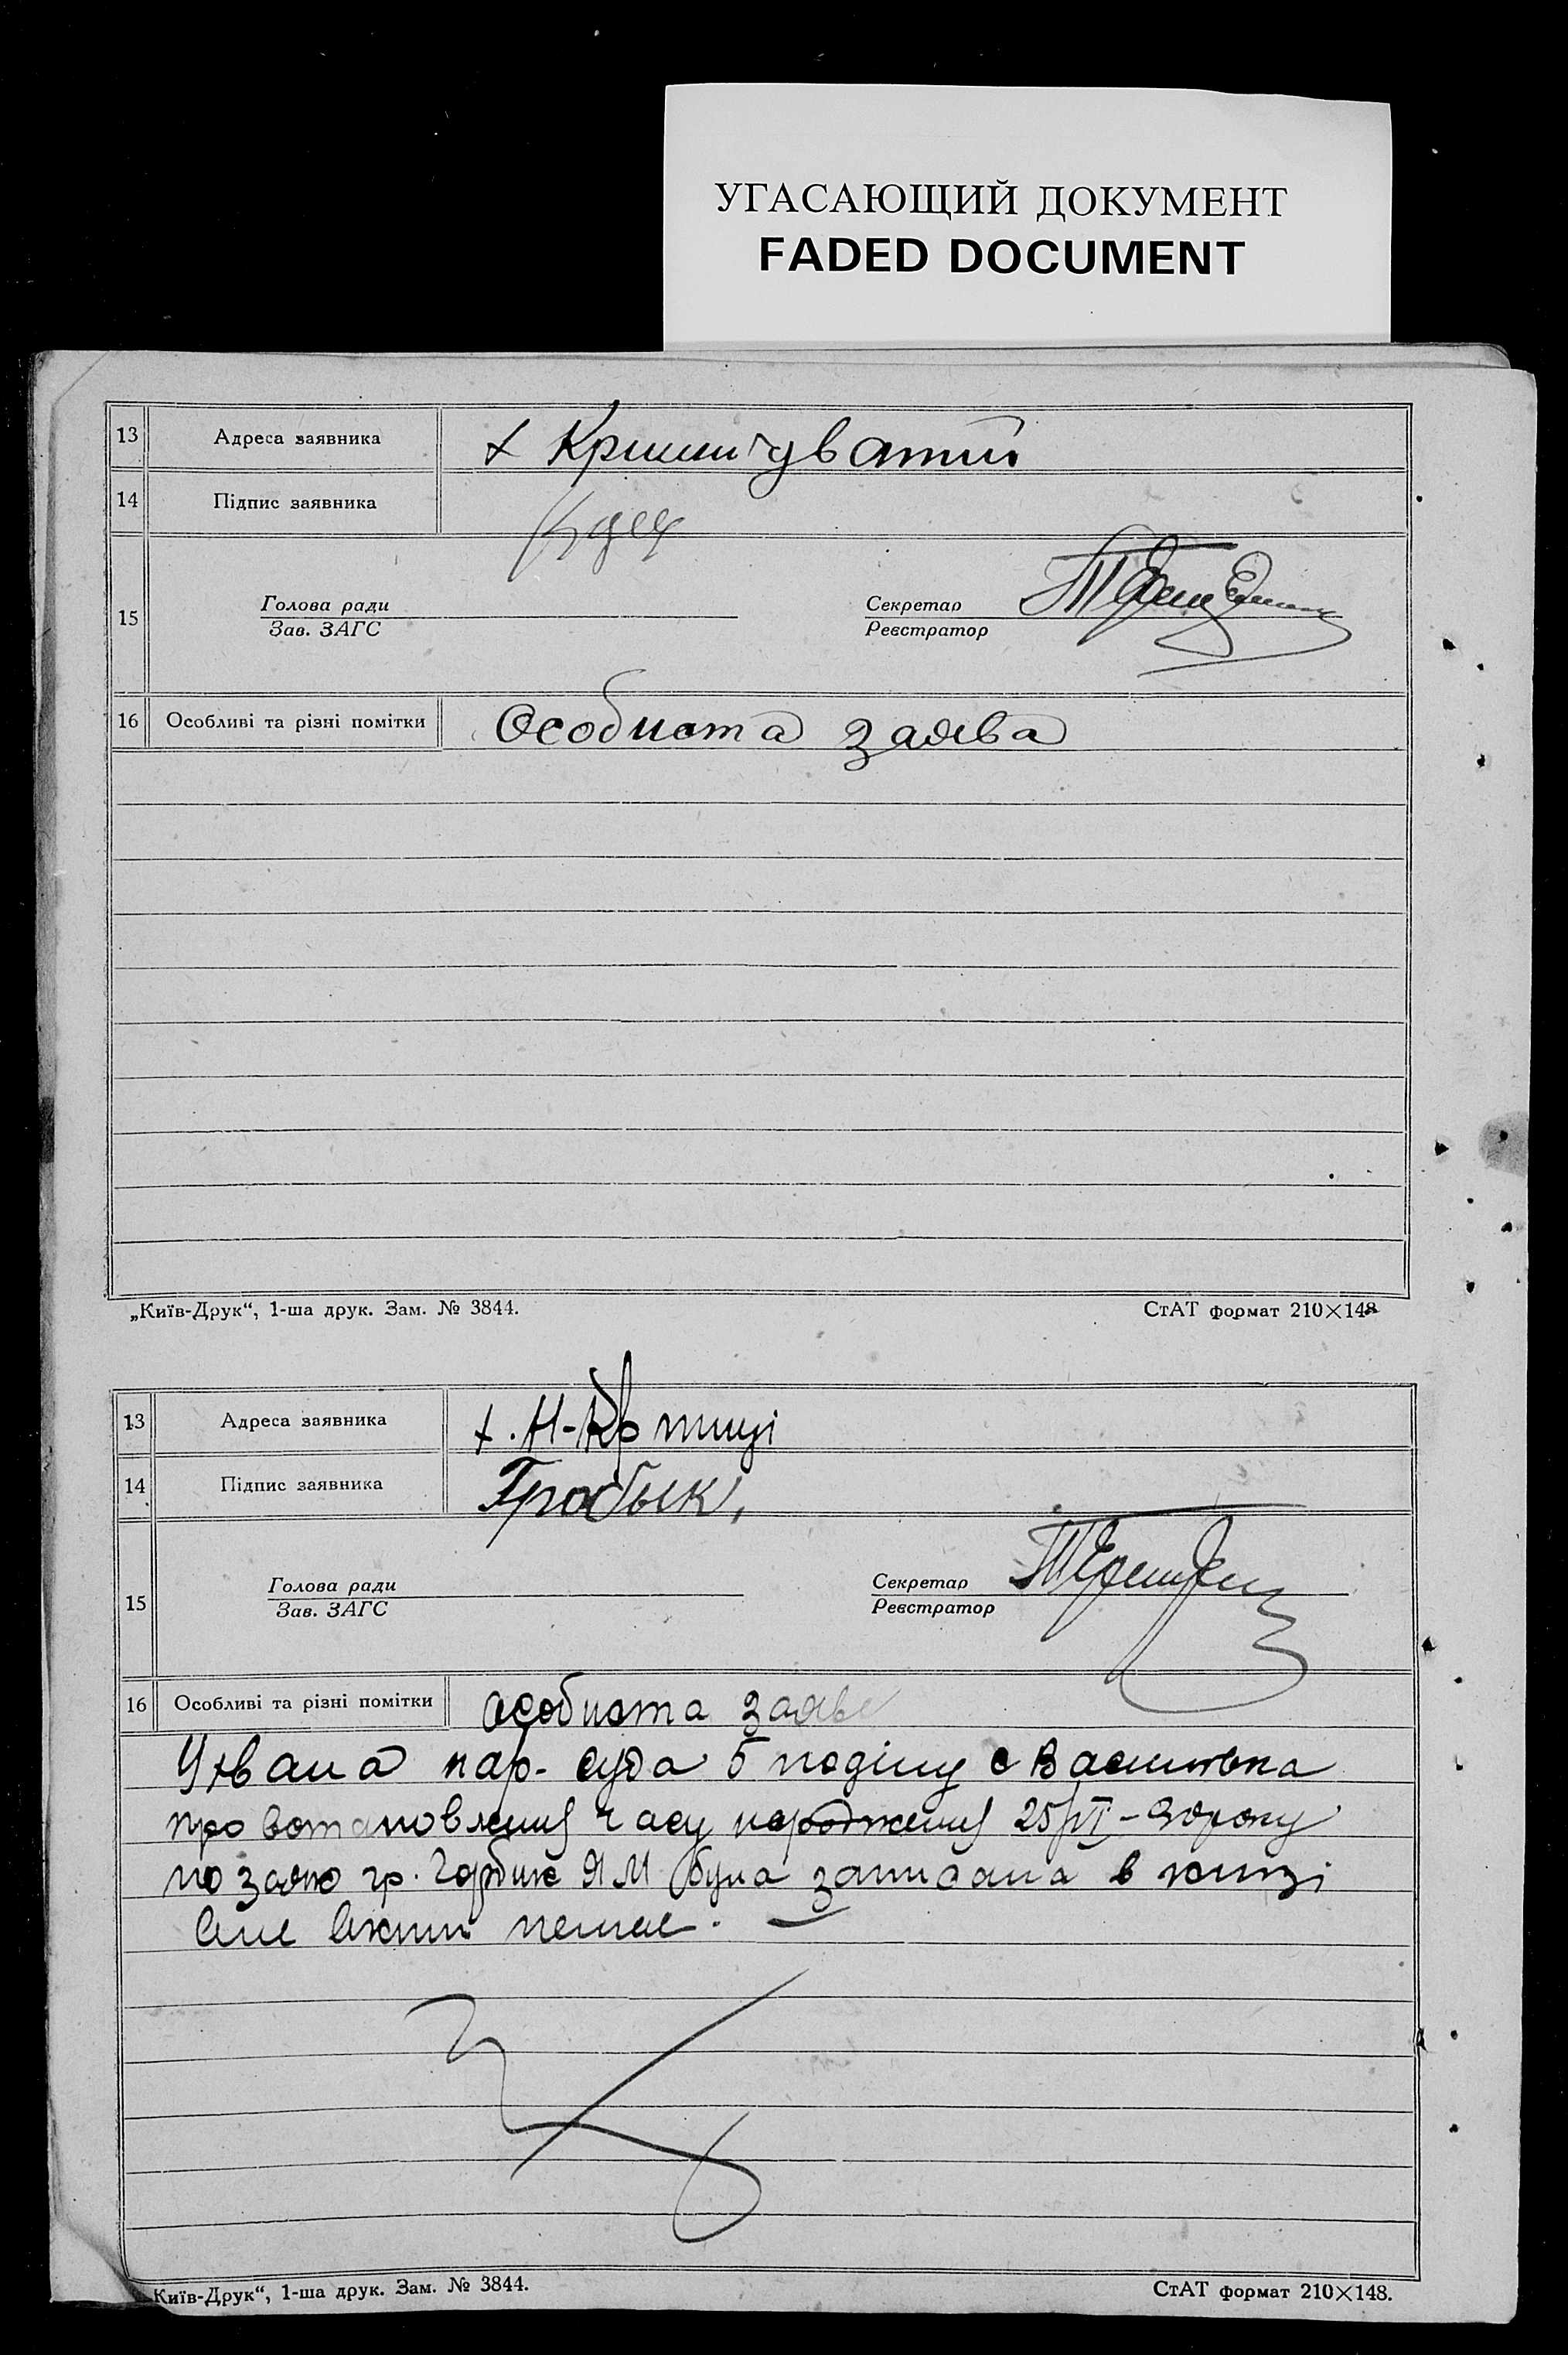 УГАСАЮЩИЙ ДОКУМЕНТ
FADED DOCUMENT
13 Адреса заявника х Криничуватий
14 Підпис заявника
15 Голова ради
Зав. ЗАГС
Секретар
Реєстратор
16 Особливі та різні помітки Особиста заява
„Київ-Друк“, 1-ша друк. Зам. № 3844. СтАТ формат 210×148
13 Адреса заявника х. Н-
14 Підпис заявника
15 Голова ради
Зав. ЗАГС
Секретар
Реєстратор
16 Особливі та різні помітки особиста заява
Ухвала нар. суда 5 с Василівка
про встановлення часу народження 25/VI-
по заяв гр. Горбик Я М була записана в книзі
але нема.
Київ-Друк“, 1-ша друк. Зам. № 3844. СтАТ формат 210×148.